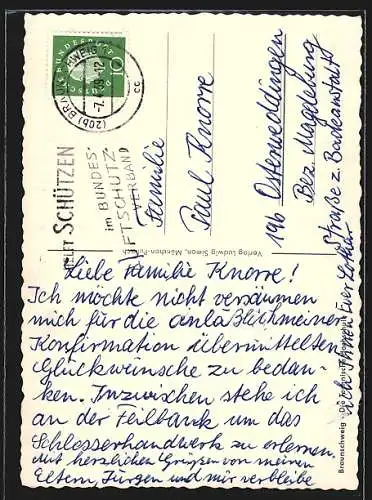 Liebe Familie Knorre!
Ich möchte nicht versäumen
mich für die anläßlich meiner
Konfirmation übermittelten
Glückwünsche zu bedan-
ken. Inzwischen stehe ich
an der Feilbank um das
Schlosserhandwerk zu erlernen.
Mit herzlichen Grüßen von meinen
Eltern, Jürgen und mir verbleibe
ich Ihnen Euer Lothar
Familie
Paul Knorre
19b Osterweddingen
Bez. Magdeburg
Straße z. Bodeanstalt
HELFT SCHÜTZEN
im BUNDES-
LUFTSCHUTZ-
VERBAND
(20b) BRAUNSCHWEIG
cc
DEUTSCHE BUNDESPOST
10
Verlag Ludwig Simon, München-Pullach
Braunschweig